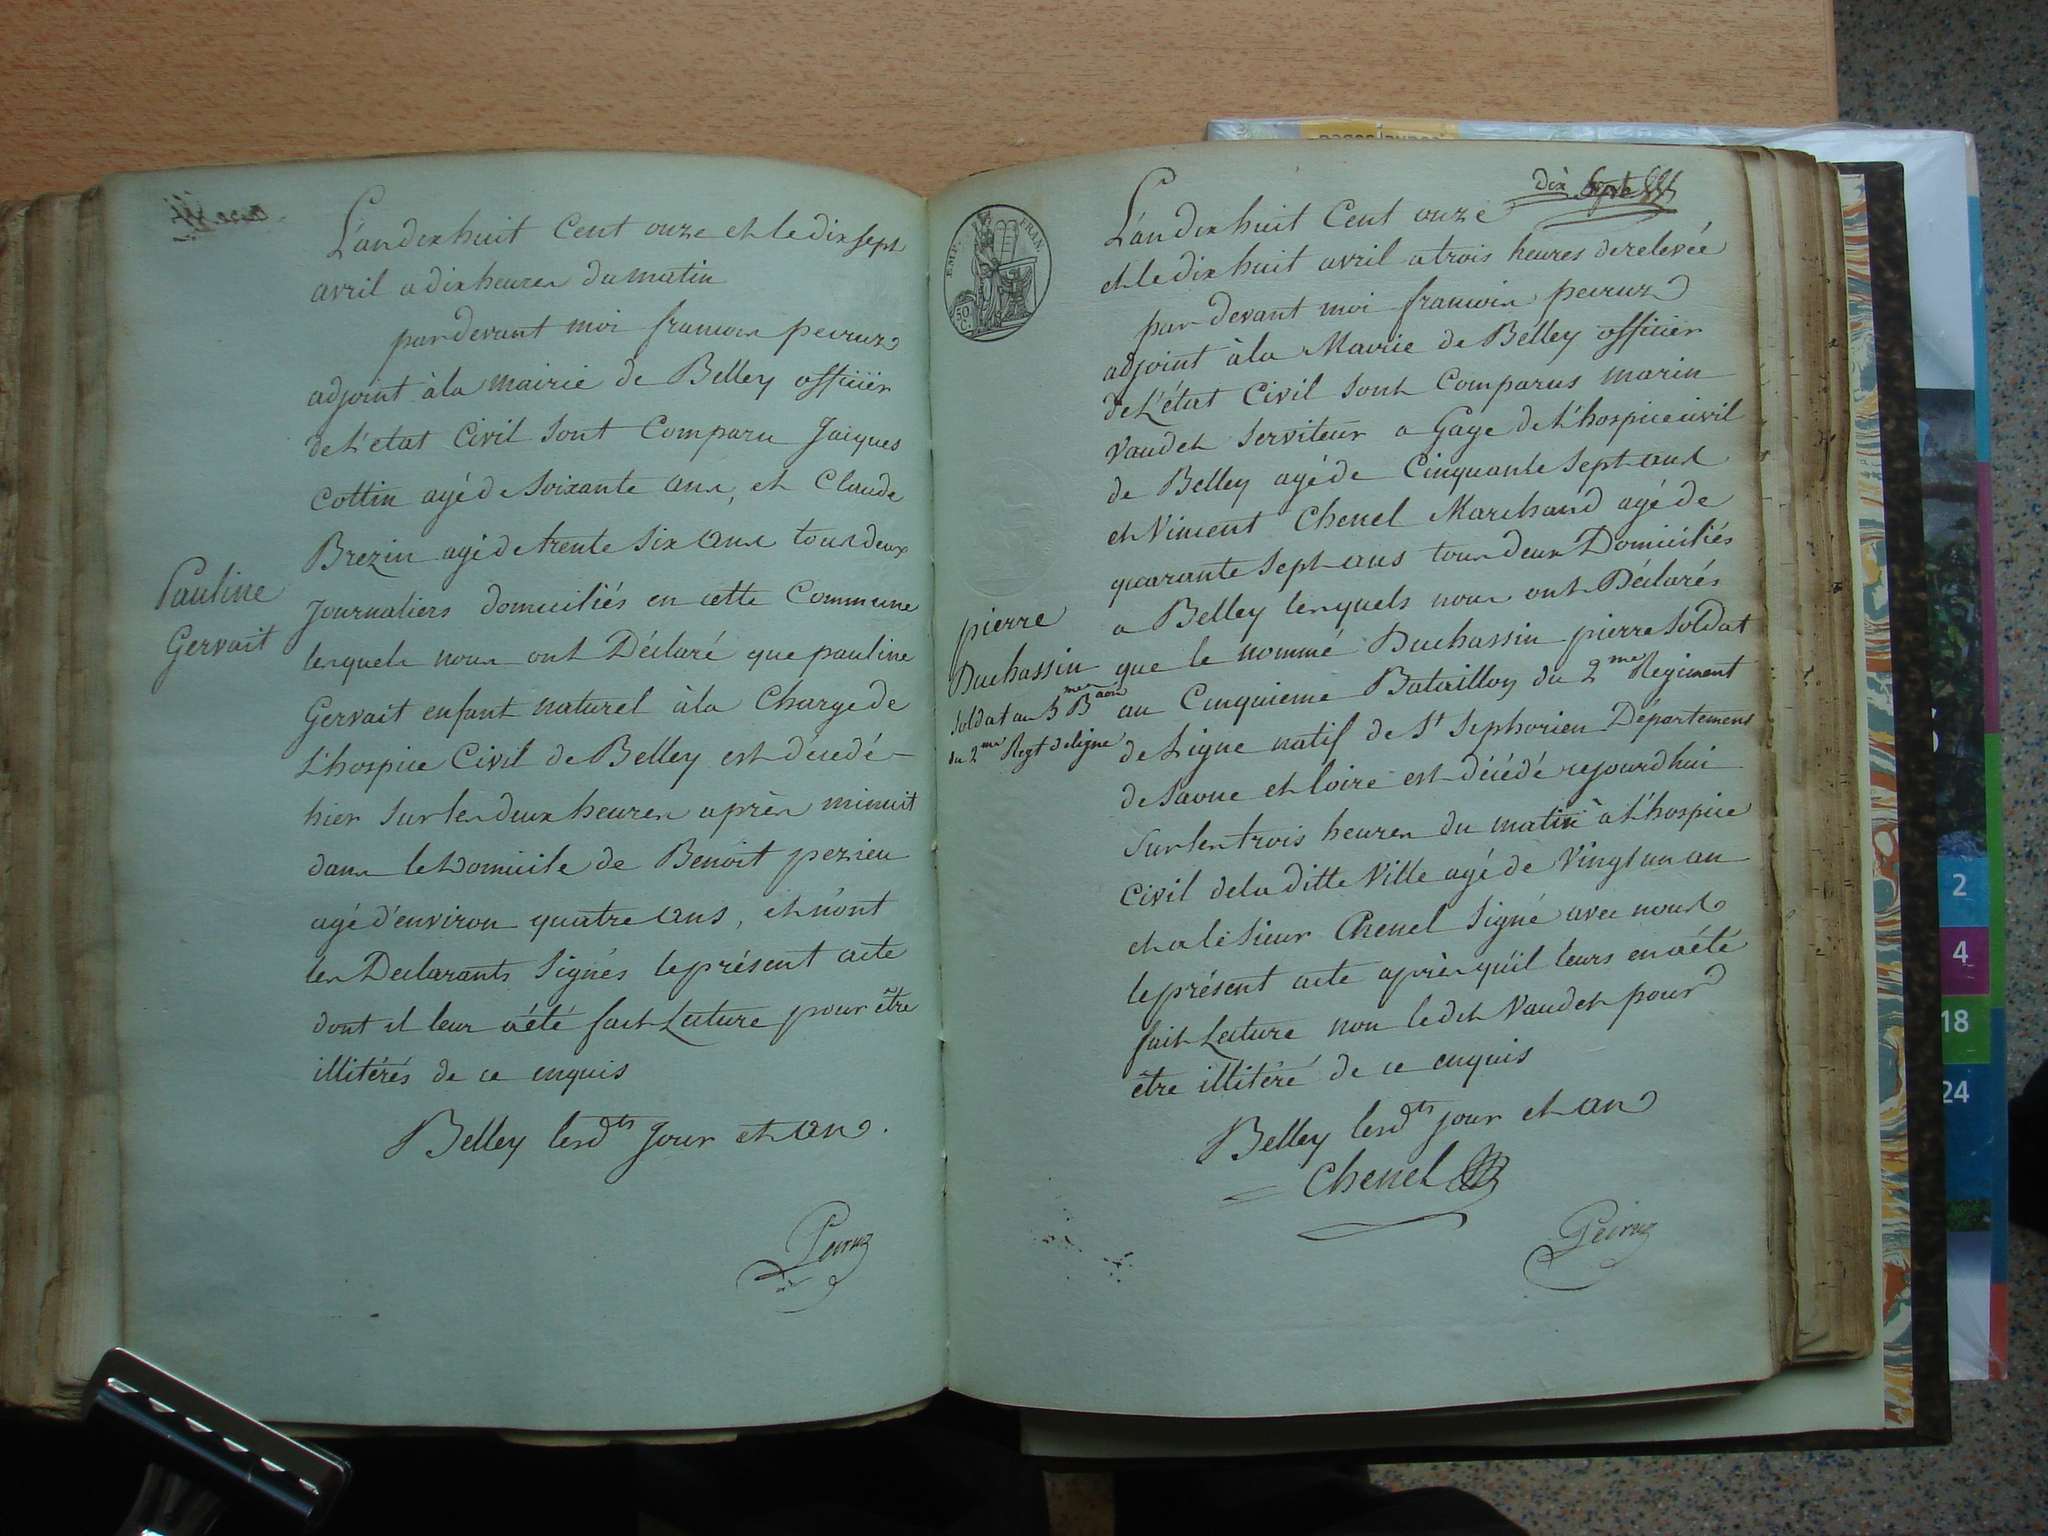 L'an dix huit Cent onze et le dix sept
avril a dix heures du matin
par devant moi francois peiruz
adjoint à la mairie de Belley officier
de L'etat Civil sont Comparu Jacques
Cottin agé de soixante ans, et Claude
Brezin agé de trente six ans tous deux
Journaliers domiciliés en cette Commune
lesquels nous ont Déclaré que pauline
Gervait enfant naturel à la Charge de
L'hospice Civil de Belley est décédé
hier sur les deux heures après minuit
dans le Domicile de Benoit pezieu
agé d'environ quatre ans, et n'ont
les Declarants Signés le présent acte
dont il leur a été fait Lecture pour être
illitérés de ce enquis
Belley lesdts Jour et an.
Peiruz
Pauline
Gervait
dix Sept
EMP. FRAN.
50 C.
L'an dix huit Cent onze
et le dix huit avril a trois heures de relevée
par devant moi francois peiruz
adjoint à la Mairie de Belley officier
de L'état Civil sont Comparus marin
Vaudet Serviteur a Gage de L'hospice civil
de Belley agé de Cinquante Sept ans
et Vincent Chenel Marchand agé de
quarante Sept ans tous deux Domiciliés
a Belley lesquels nous ont Déclarés
que le nommé Duchassin pierre Soldat
au Cinquieme Bataillon du 2me Regiment
de Ligne natif de St Sephorien Département
de Saone et loire est décédé cejourdhui
sur les trois heures du matin à L'hospice
Civil de la ditte Ville agé de Vingt un an
et a le Sieur Chenel Signé avec nous
le présent acte après qu'il leurs en a été
fait Lecture non le dt Vaudet pour
être illitéré de ce enquis
Belley lesdts jour et an
Chenel
Peiruz
pierre
Duchassin
Soldat au 5me Baon
du 2me Regt de ligne
2
4
18
24